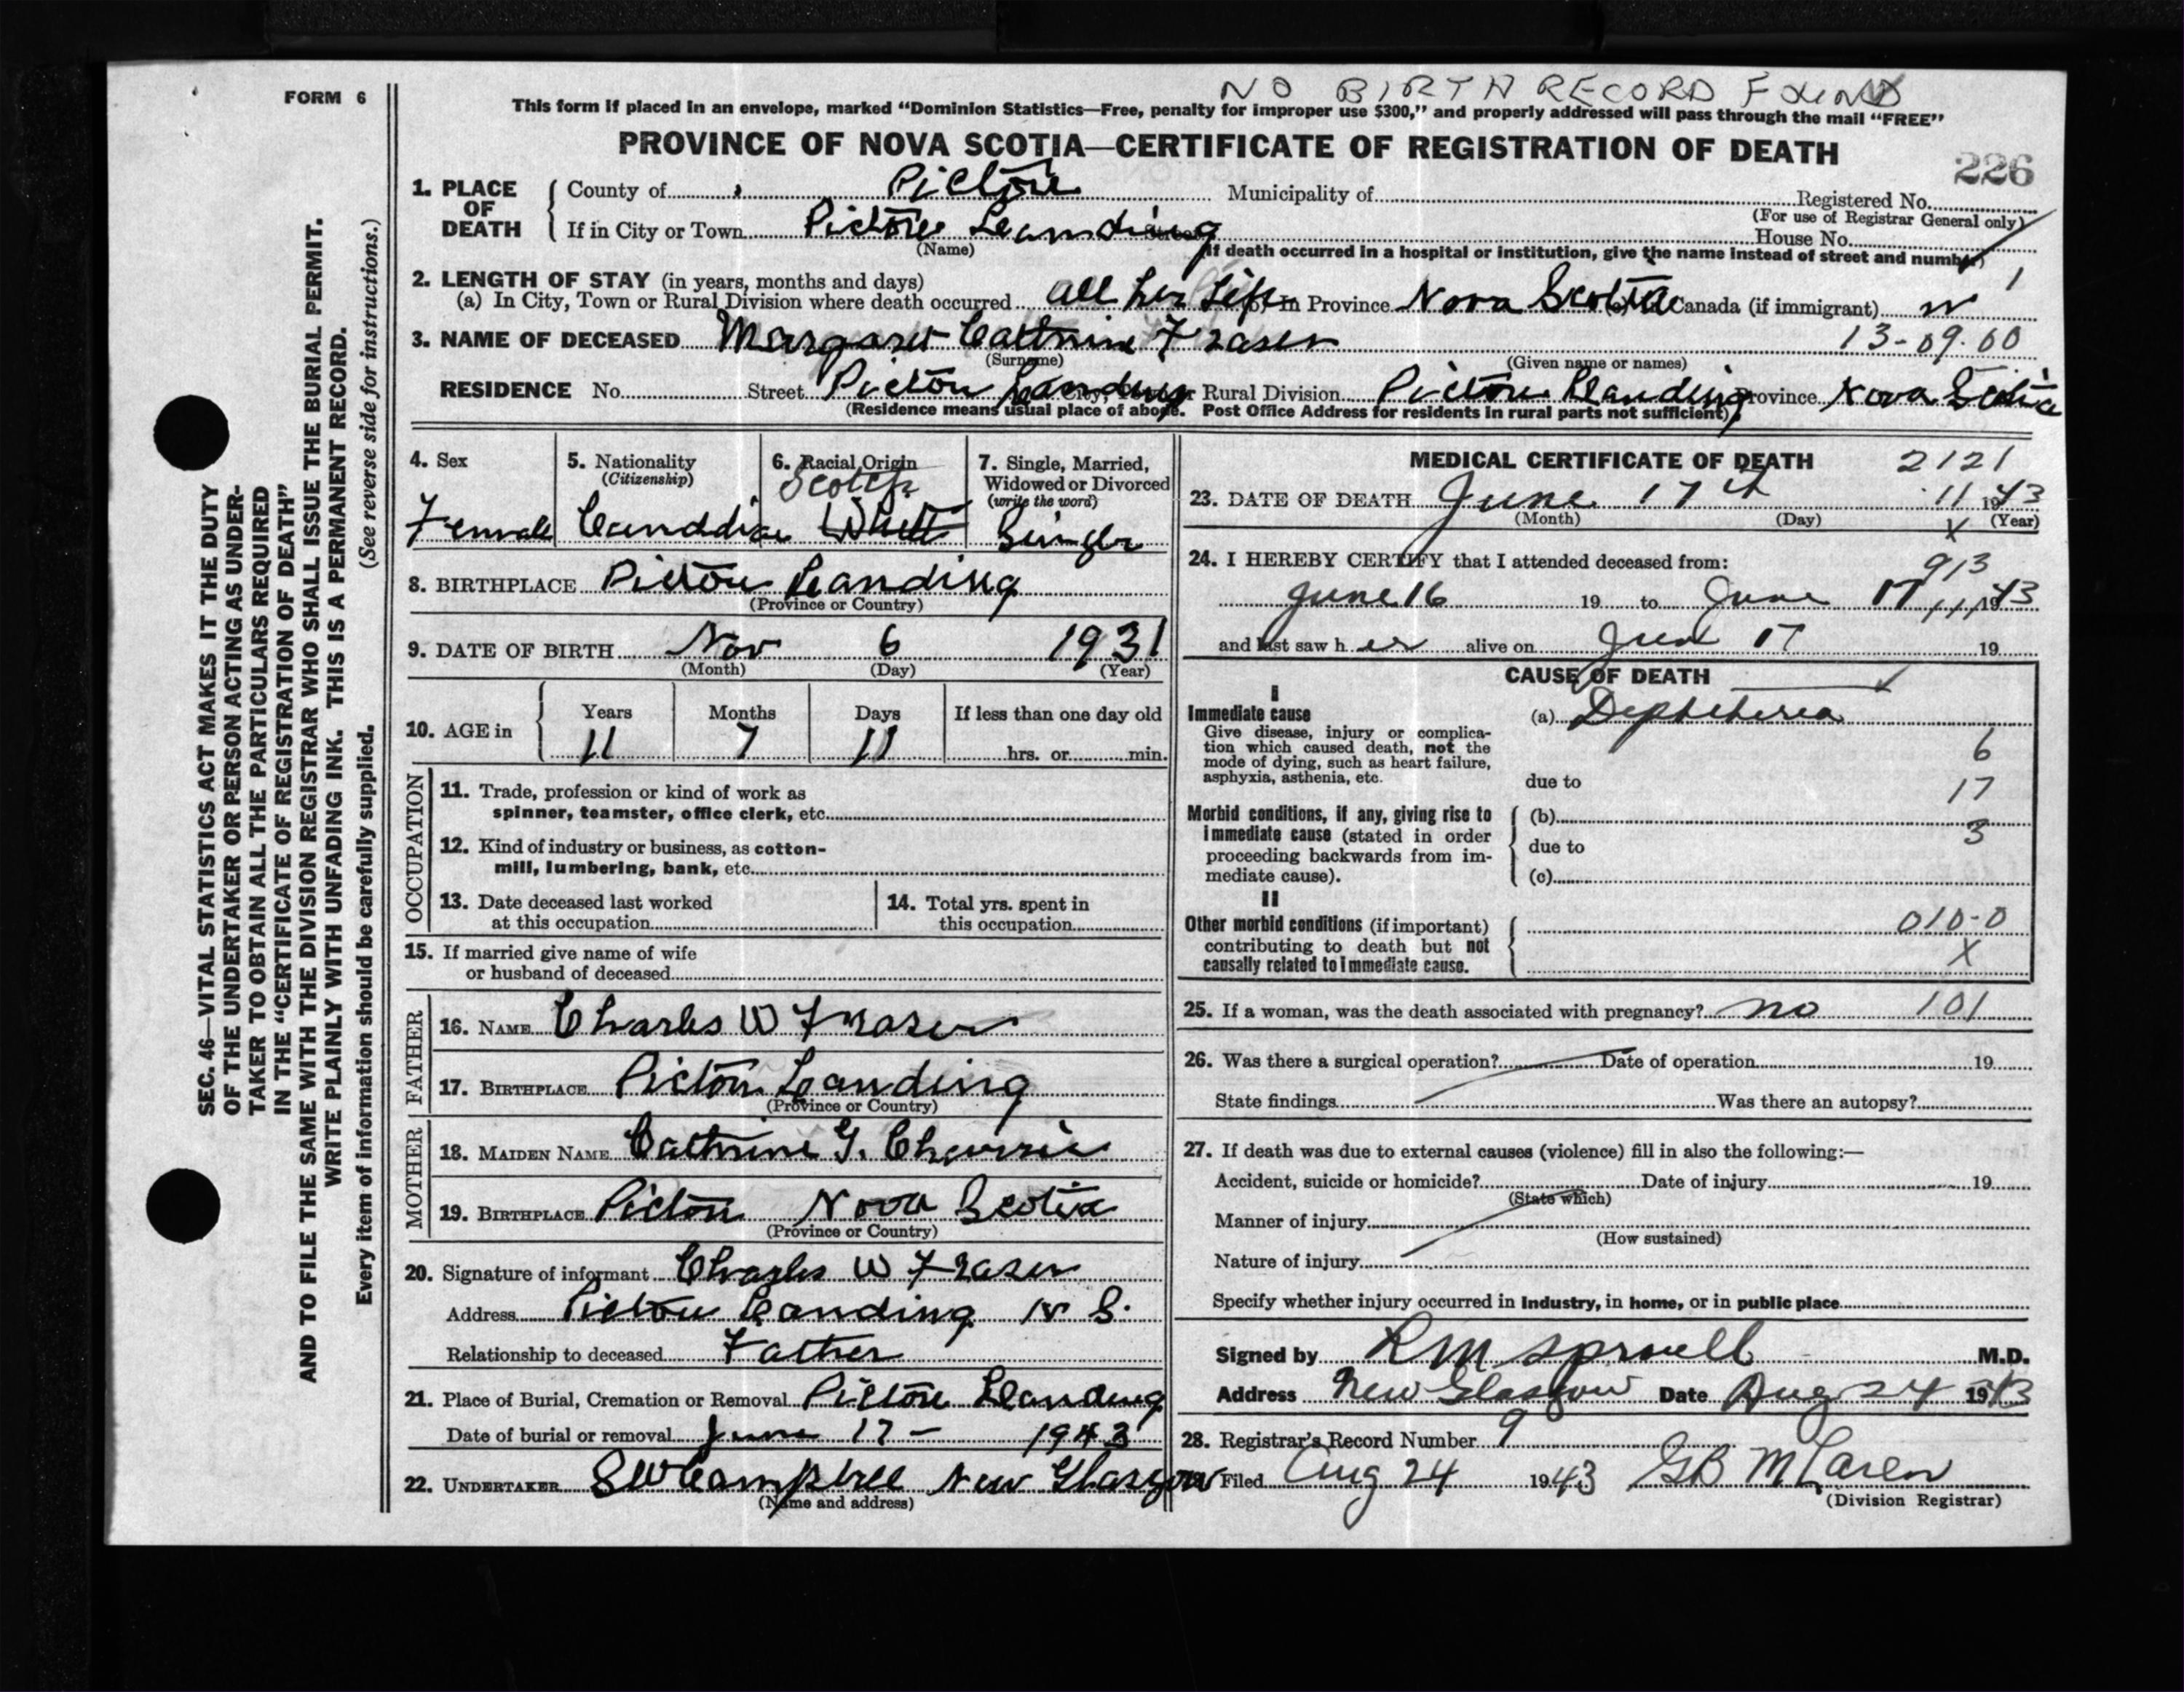 NO BIRTH RECORD FOUND
FORM 6
This form if placed in an envelope, marked "Dominion Statistics—Free, penalty for improper use $300," and properly addressed will pass through the mail "FREE"
PROVINCE OF NOVA SCOTIA—CERTIFICATE OF REGISTRATION OF DEATH
226
1. PLACE OF DEATH County of Pictou Municipality of Registered No.
(For use of Registrar General only)
If in City or Town Pictou Leanding Street House No.
(Name) (If death occurred in a hospital or institution, give the name instead of street and number)
2. LENGTH OF STAY (in years, months and days) 1
(a) In City, Town or Rural Division where death occurred all her Life (b) In Province Nova Scotia Canada (if immigrant)
3. NAME OF DECEASED Margaret Cathrine Fraser 13-09.00
(Surname) (Given name or names)
RESIDENCE No. Street Pictou Landing or Rural Division Pictou Landing Province Nova Scotia
(Residence means usual place of abode. Post Office Address for residents in rural parts not sufficient)
4. Sex 5. Nationality 6. Racial Origin 7. Single, Married,
(Citizenship) Scotch Widowed or Divorced
(write the word)
Female Canddia White Single
8. BIRTHPLACE Pictou Landing
(Province or Country)
9. DATE OF BIRTH Nov 6 1931
(Month) (Day) (Year)
10. AGE in Years Months Days If less than one day old
11 7 11 hrs. or min.
OCCUPATION
11. Trade, profession or kind of work as
spinner, teamster, office clerk, etc.
12. Kind of industry or business, as cotton-
mill, lumbering, bank, etc.
13. Date deceased last worked 14. Total yrs. spent in
at this occupation this occupation
15. If married give name of wife
or husband of deceased
FATHER
16. NAME Charles W Fraser
17. BIRTHPLACE Pictou Landing
(Province or Country)
MOTHER
18. MAIDEN NAME Cathrine G. Charrie
19. BIRTHPLACE Pictou Nova Scotia
(Province or Country)
20. Signature of informant Charles W Fraser
Address Pictou Landing N S.
Relationship to deceased Father
21. Place of Burial, Cremation or Removal Pictou Landing
Date of burial or removal June 17 - 1943
22. UNDERTAKER SW Campbell New Glasgow
(Name and address)
MEDICAL CERTIFICATE OF DEATH 2121
23. DATE OF DEATH June 17th 11 1943
(Month) (Day) X (Year)
24. I HEREBY CERTIFY that I attended deceased from: 913
June 16 19 to June 17 1943
and last saw her alive on Jun 17 19
CAUSE OF DEATH
I
Immediate cause (a) Dephtheria
Give disease, injury or complica-
tion which caused death, not the 6
mode of dying, such as heart failure,
asphyxia, asthenia, etc. due to 17
Morbid conditions, if any, giving rise to (b)
immediate cause (stated in order due to 3
proceeding backwards from im-
mediate cause). (c)
II
Other morbid conditions (if important) 010-0
contributing to death but not X
causally related to immediate cause.
25. If a woman, was the death associated with pregnancy? no 101
26. Was there a surgical operation? Date of operation 19
State findings Was there an autopsy?
27. If death was due to external causes (violence) fill in also the following:—
Accident, suicide or homicide? Date of injury 19
(State which)
Manner of injury
(How sustained)
Nature of injury
Specify whether injury occurred in industry, in home, or in public place
Signed by RM Sproull M.D.
Address New Glasgow Date Aug 24 1943
28. Registrar's Record Number 9
Filed Aug 24 1943 GB McLaren
(Division Registrar)
SEC. 46—VITAL STATISTICS ACT MAKES IT THE DUTY
OF THE UNDERTAKER OR PERSON ACTING AS UNDER-
TAKER TO OBTAIN ALL THE PARTICULARS REQUIRED
IN THE "CERTIFICATE OF REGISTRATION OF DEATH"
AND TO FILE THE SAME WITH THE DIVISION REGISTRAR WHO SHALL ISSUE THE BURIAL PERMIT.
WRITE PLAINLY WITH UNFADING INK. THIS IS A PERMANENT RECORD.
Every item of information should be carefully supplied. (See reverse side for instructions.)